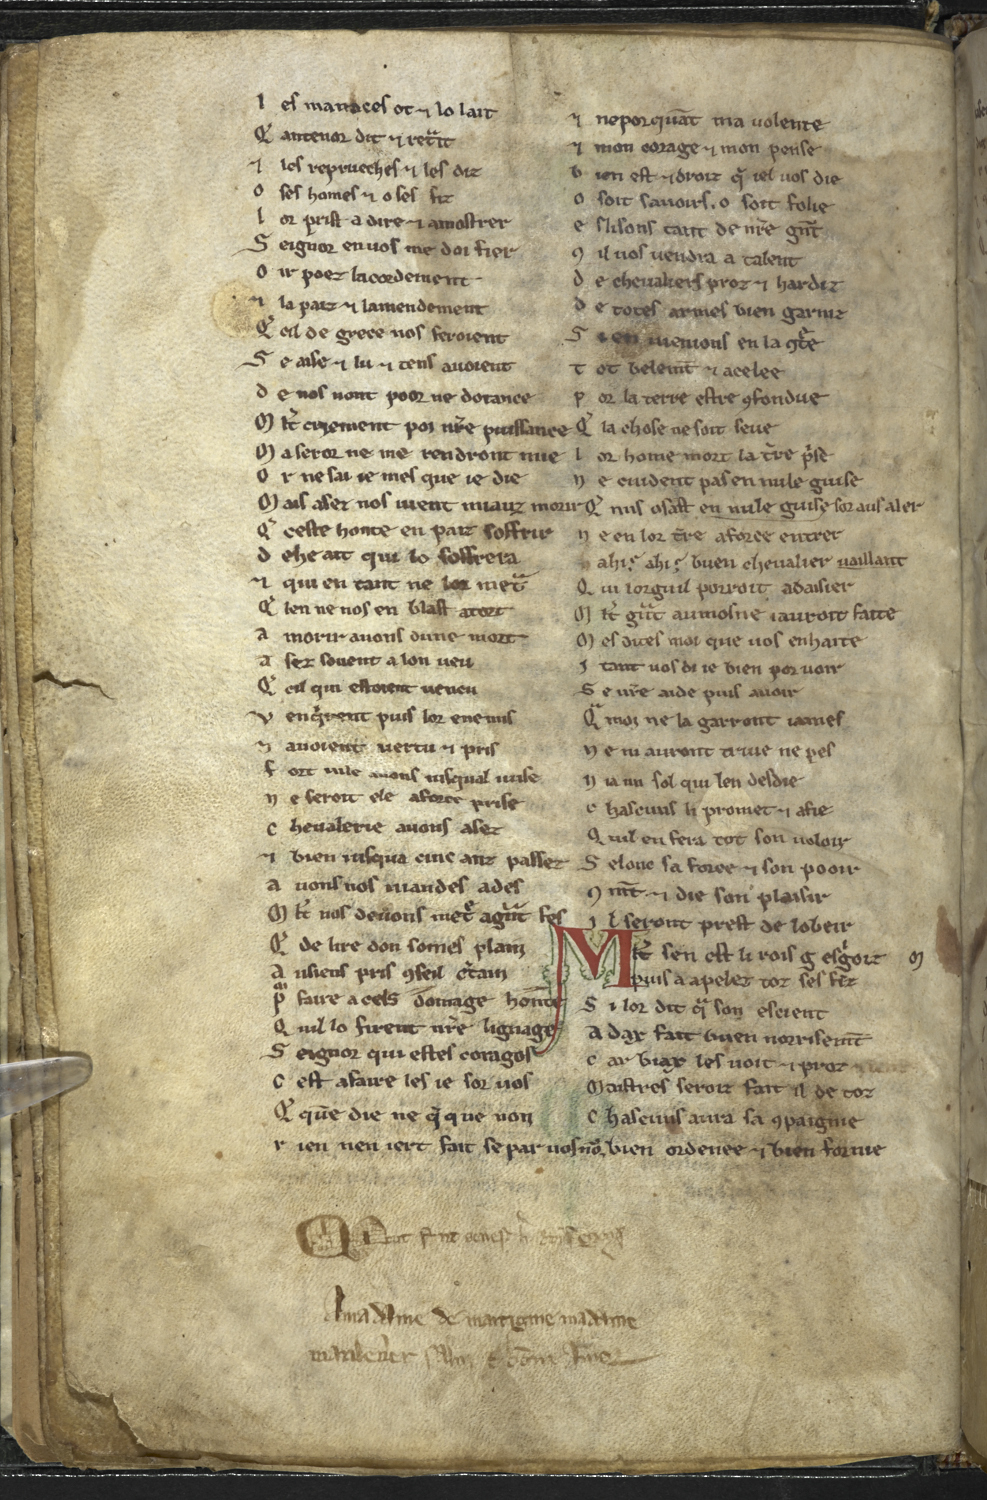 l es manaces ot ⁊ lo lait
Q̓ antenor dit ⁊ ret̃it
⁊ les reprueches ⁊ les diz
O ses homes ⁊ o ses fiz
l or prist a dire ⁊ amostrer
S eignor en uos me doi fier
O ir poez lacordement
⁊ la paiz ⁊ lamendement
Q̓ cil de grece nos feroient
S e aise ⁊ lu ⁊ tens auoient
d e nos nont poor ne dotance
M lt̃ criement poi nr̃e puissance
M a seror ne me rendront mie
O r ne sai ie mes que ie die
M ais asez nos uient miauz morir
Q̓ ceste honte en paiz soffrir
d ehe ait qui lo soffrera
⁊ qui en tant ne lor met̃a
Q̓ len ne nos en blast atort
a morir auons dune mort
a sez souent a lon ueu
Q̓ cil qui estoient uencu
V enq̃rent puis lor enemis
⁊ auoient uertu ⁊ pris
f ort uile auons iusqual uile
N e seroit ele a force prise
C heualerie auons asez
⁊ bien iusqua cinc anz passez
a uons nos uiandes ades
M lt̃ nos deuons met̃ agñt fes
Q̓ de lire don somes plain
A usiens pris 9seil c̃tain
p̃ faire a cels domage honte
Q uil lo firent nr̃e lignage
S eignor qui estes coragos
C est afaire les ie sor uos
Q̓ que die ne q̃ que non
r ien nen iert fait se par uos nõ
⁊ neporquãt ma uolente
⁊ mon corage ⁊ mon pense
b ien est ⁊ droiz q̃ iel uos die
O soit sauoirs. o soit folie
e slisons tant de nr̃e gñt
9 il uos uendra a talent
d e cheualiers proz ⁊ hardiz
d e totes armes bien garniz
S i en uienions en la 9t̃e
t ot belemt̃ ⁊ acelee
p or la terre estre 9fondue
Q̓ la chose ne soit seue
l or home mort la t̃re p̃se
N e cuident pas en nule guise
Q̓ nus osast en nule guise sor aus aler
N e en lor t̃re a force entrer
ahi ahi buen cheualier uaillant
Q ui lorguil porroit adaisier
M lt̃ gñt aumosne iauroit faite
M es dites moi que uos enhaite
⁊ tant uos di ie bien por uoir
S e ur̃e aide puis auoir
Q̓ moi ne la garront iames
N e ni auront triue ne pes
N ia nu sol qui len desdie
C hascuns li promet ⁊ afie
Q uil en fera tot son uoloir
S elonc sa force ⁊ son pooir
9 mt̃ ⁊ die son plaisir
⁊ l seront prest de lobeir
M lt̃ sen est li rois g esgoiz
puis a apelez toz ses fiz
S i lor dit q̃ son escient
A daz fait buen norrisemt̃
C ar biax les uoit ⁊ proz
M aistres seroiz fait il de toz
C hascuns aura sa 9paignie
bien ordenee ⁊ bien fornie
A ma dame de martignie madame